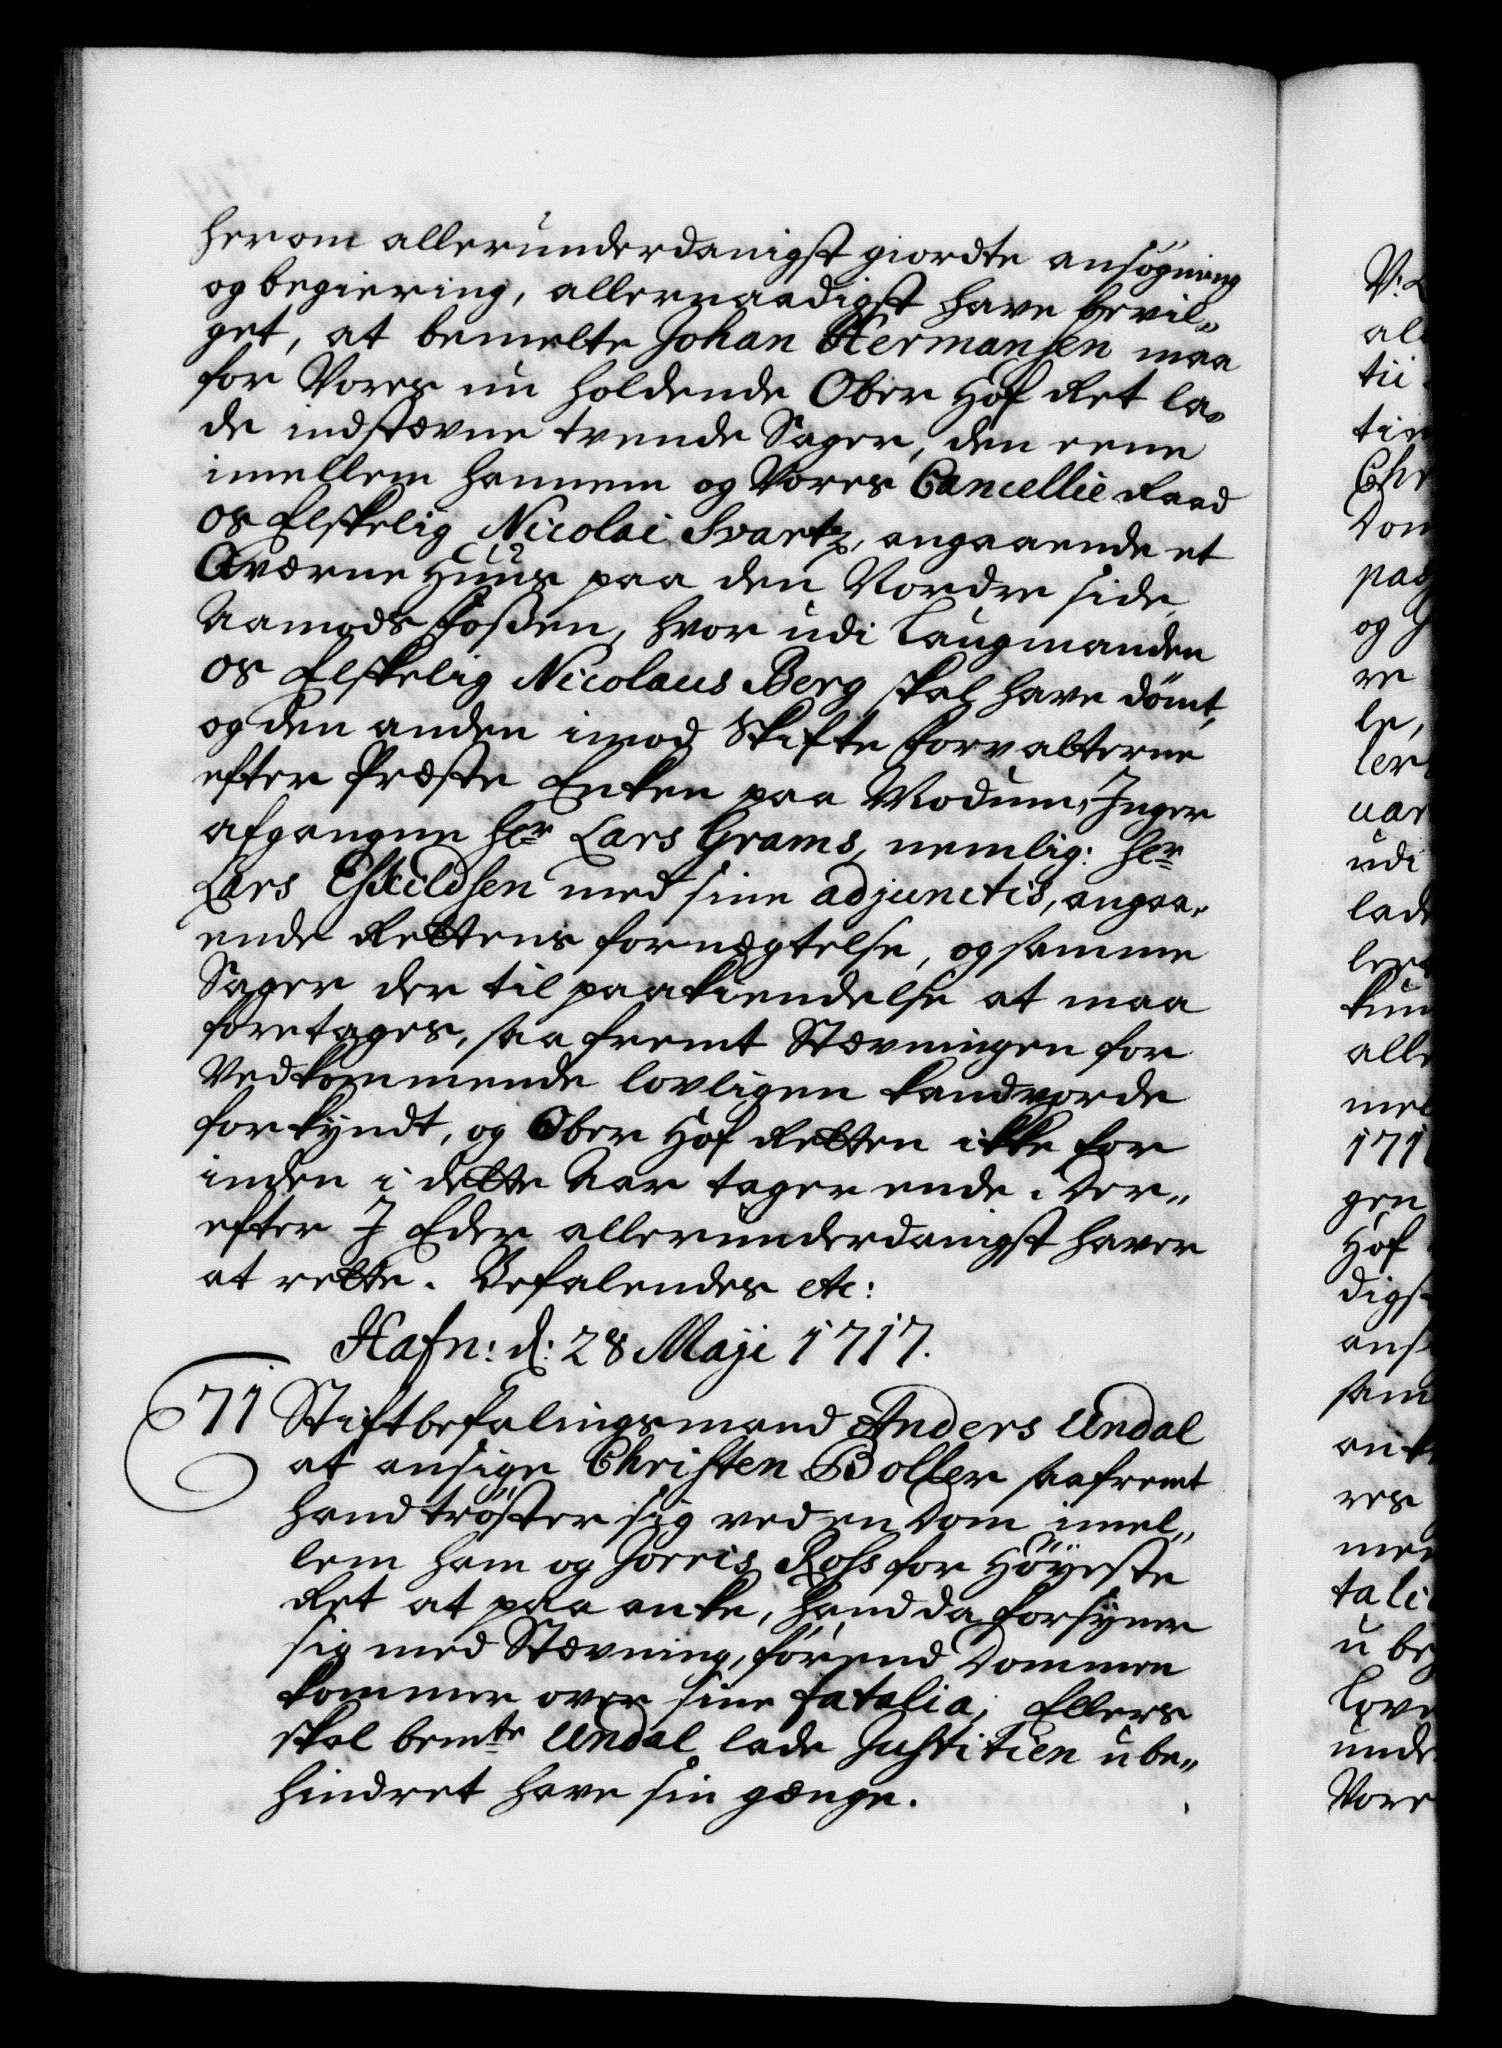 herom allerunderdanigst giordte ansögning
og begiering, allernaadigst have bevil„
get, at bemelte Johan Hermansen maa
for Vores nu holdende Ober Hof Ret la„
de indstævne tvende Sager, den eene
imellem hannem og Vores Cancellie Raad
os Elskelig Nicolai Svartz, angaaende et
Qværne Huus paa den Nordre side
Aamods Foßen, hvor udi Laugmanden
os Elskelig Nicolaus Berg skal have dömt,
og den anden imod Skifte Forvalterne
efter Præste Enken paa Modum, Inger
afgangne Her Lars Grams, nemlig: Her
Lars Eskildsen med sine adjunctis, angaa„
ende Rettens fornegtelse, og samme
Sager der til paakiendelse at maa
foretages, saa fremt Stævningen for
Vedkommende lovligen kand vorde
forkyndt, og Ober Hof Retten ikke for
inden i dette Aar tager ende. Der„
efter I Eder allerunderdanigst haver
at rette. Befalendes etc:
Hafn: d: 28 Maji 1717.
71 Stiftbefalingsmand Anders Undal
at ansige Christen Boller saafremt
hand tröster sig ved en Dom imel„
lem ham og Jorris Rohs for Höyeste
Ret at paa anke, hand da forsyner
sig med Stævning, förend Dommen
kommer over sine fatalia; Ellers
skal bemte Undal lade Justitien ube„
hindret have sin gænge.